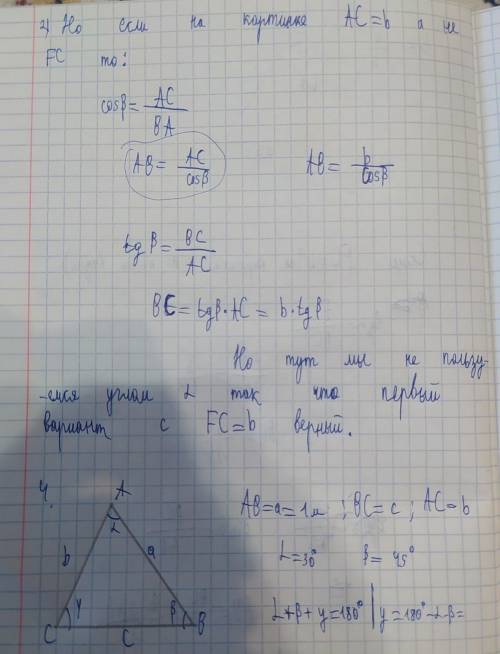 2) Но если на картинке AC=b а не
FC то:
cosβ= AC/BA
AB= AC/cosβ
AB= b/cosβ
tgβ= BC/AC
BC=tgβ·AC= b·tgβ
Но тут мы не пользу-
-емся углом α так что первый
вариант с FC=b верный.
4.
A
α
b
a
γ
β
C
c
B
AB=a=1м ; BC=c ; AC=b
α=30° β=45°
α+β+γ=180° | γ=180°-α-β=